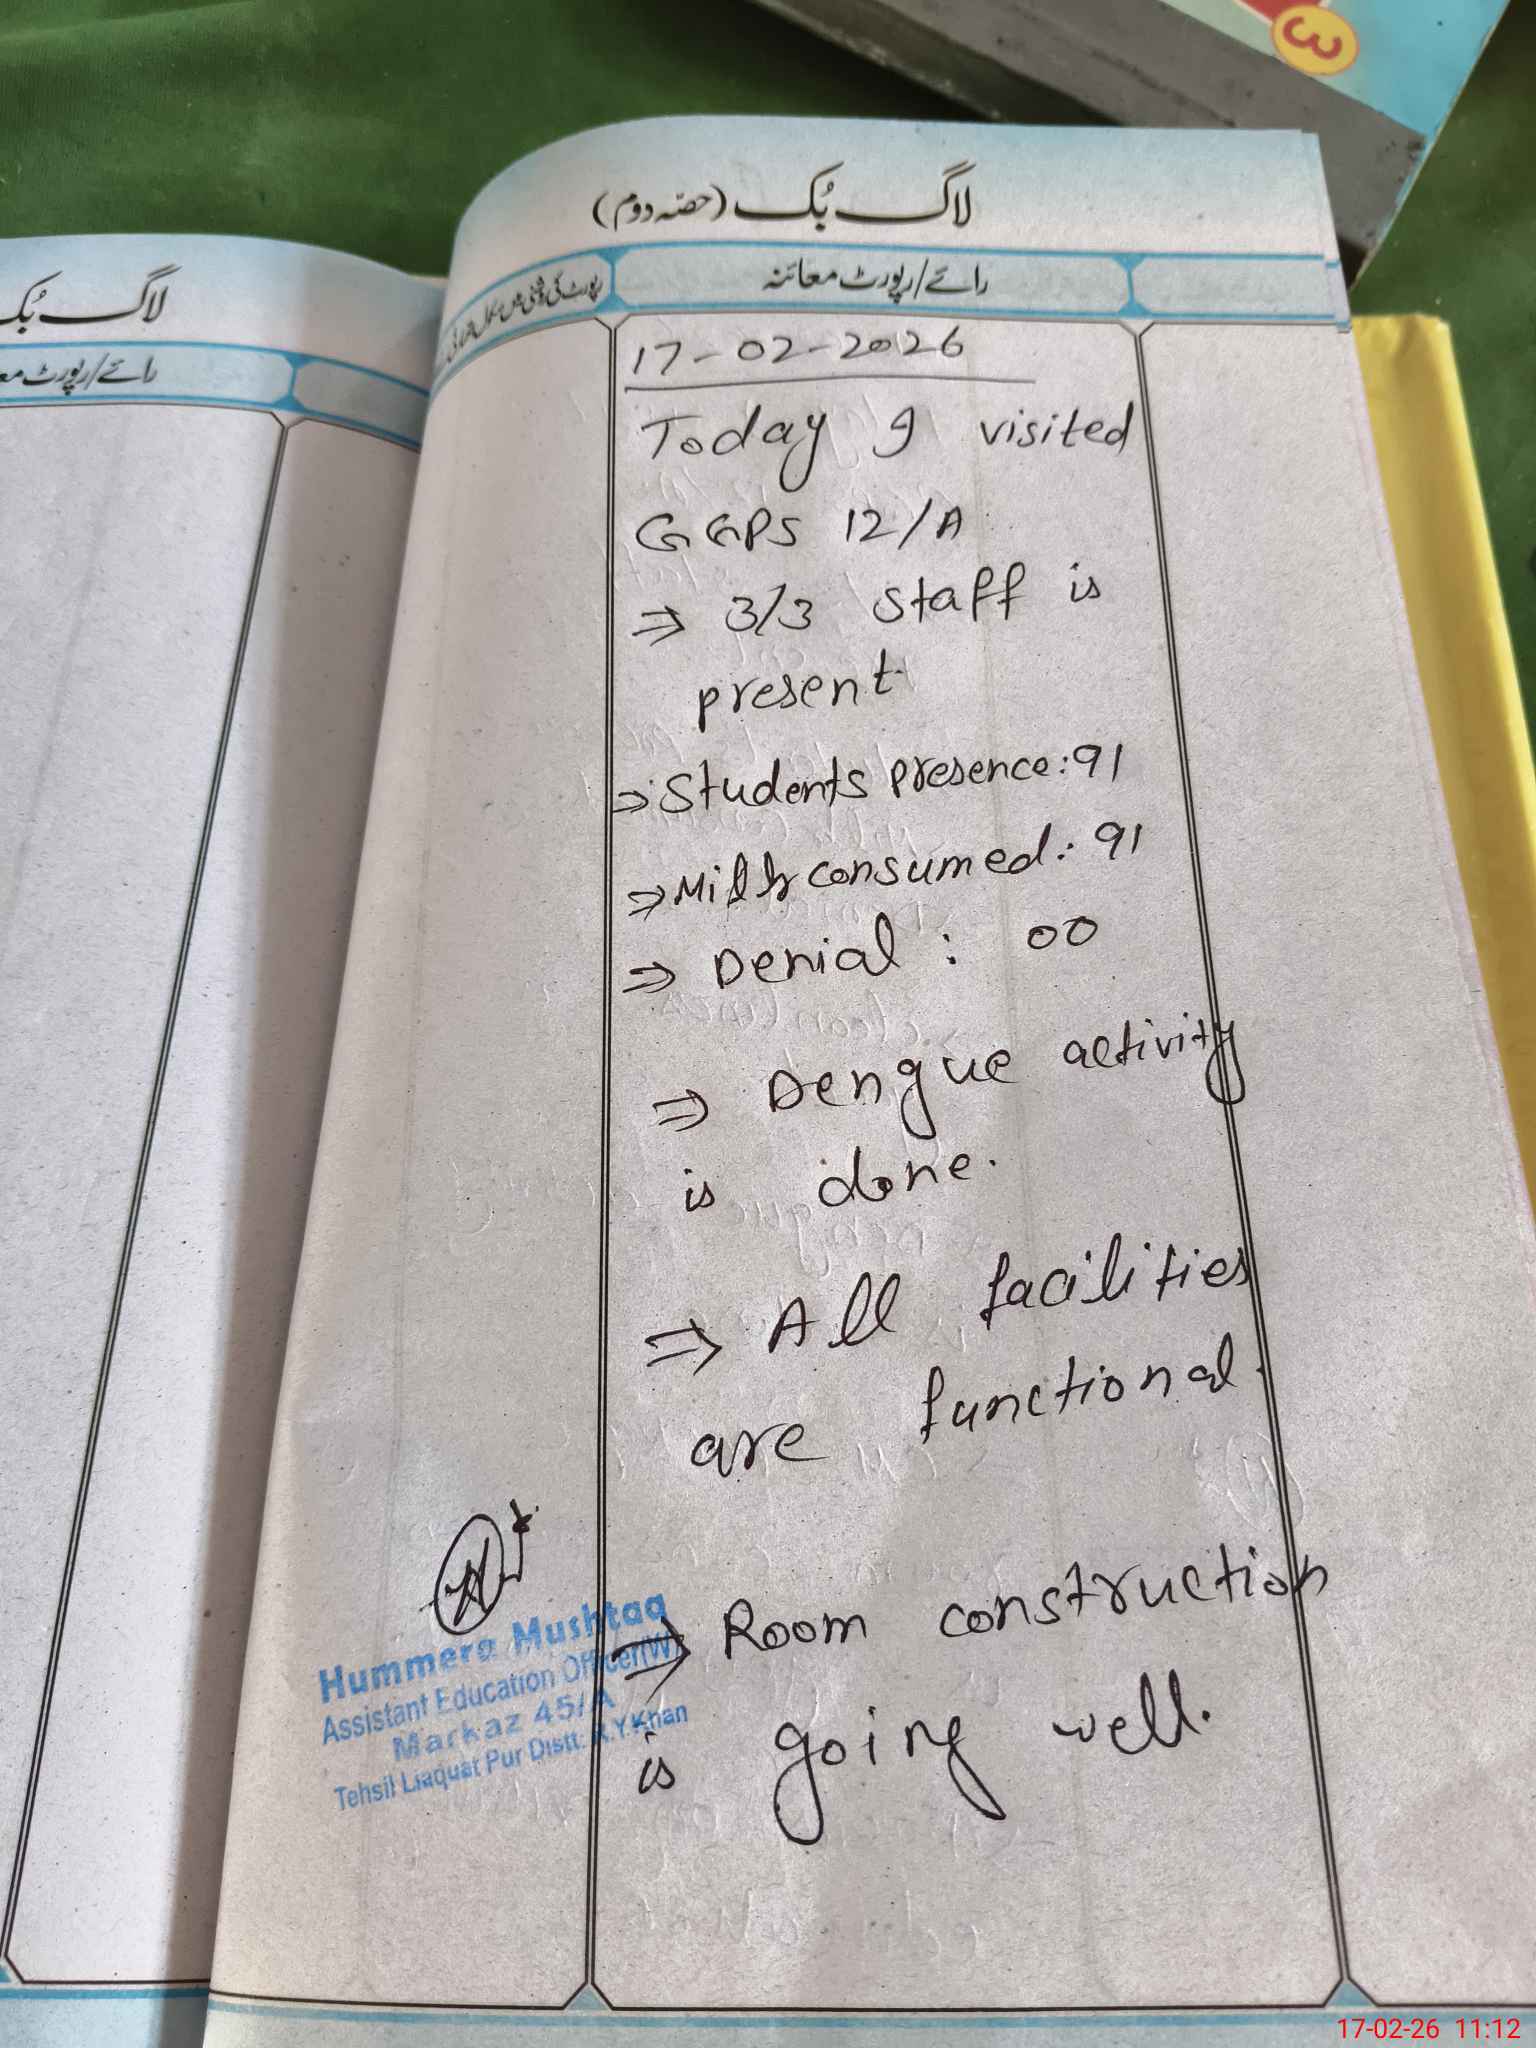 3
لاگ بُک (حصّہ دوم)
رائے/رپورٹ معائنہ
17-02-2026
Today I visited
GGPS 12/A
⇒ 3/3 staff is
present
⇒ Students presence: 91
⇒ Milk consumed: 91
⇒ Denial : 00
⇒ Dengue activity
is done.
⇒ All facilities
are functional.
⇒ Room construction
is going well.
Hummera Mushtaq
Assistant Education Officer(W)
Markaz 45/A
Tehsil Liaquat Pur Distt: R.Y.Khan
لاگ بُک
رائے/رپورٹ
17-02-26 11:12